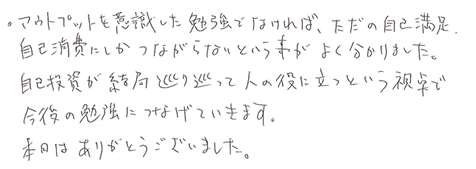 。アウトプットを意識した勉強でなければ、ただの自己満足、
自己消費にしかつながらないという事がよく分かりました。
自己投資が結局巡り巡って人の役に立つという視点で
今後の勉強につなげていきます。
本日はありがとうございました。